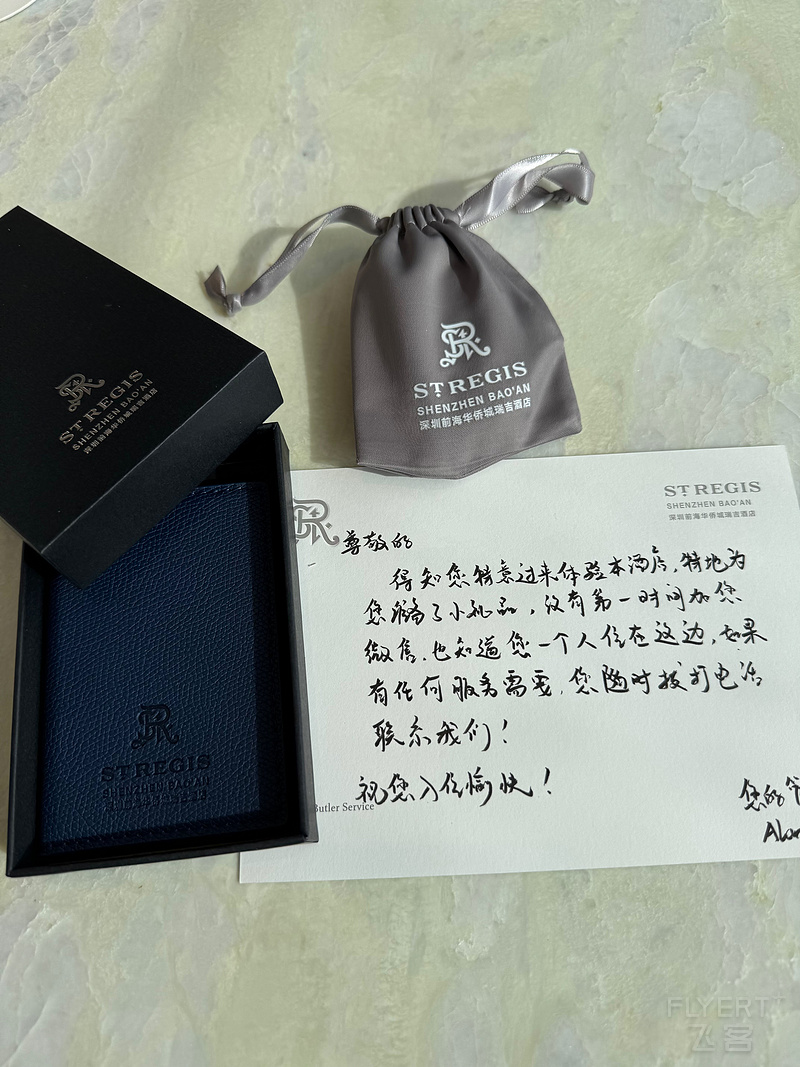 STREGIS
SHENZHEN BAO'AN
深圳前海华侨城瑞吉酒店
STREGIS
SHENZHEN BAO'AN
深圳前海华侨城瑞吉酒店
STREGIS
SHENZHEN BAO'AN
深圳前海华侨城瑞吉酒店
尊敬的
得知您特意过来体验本酒店,特地为
您准备了小礼品,没有第一时间加您
微信,也知道您一个人住在这边,如果
有任何服务需要,您随时拨打电话
联系我们!
祝您入住愉快!
Butler Service
您的
STREGIS
SHENZHEN BAO'AN
FLYERT
飞客